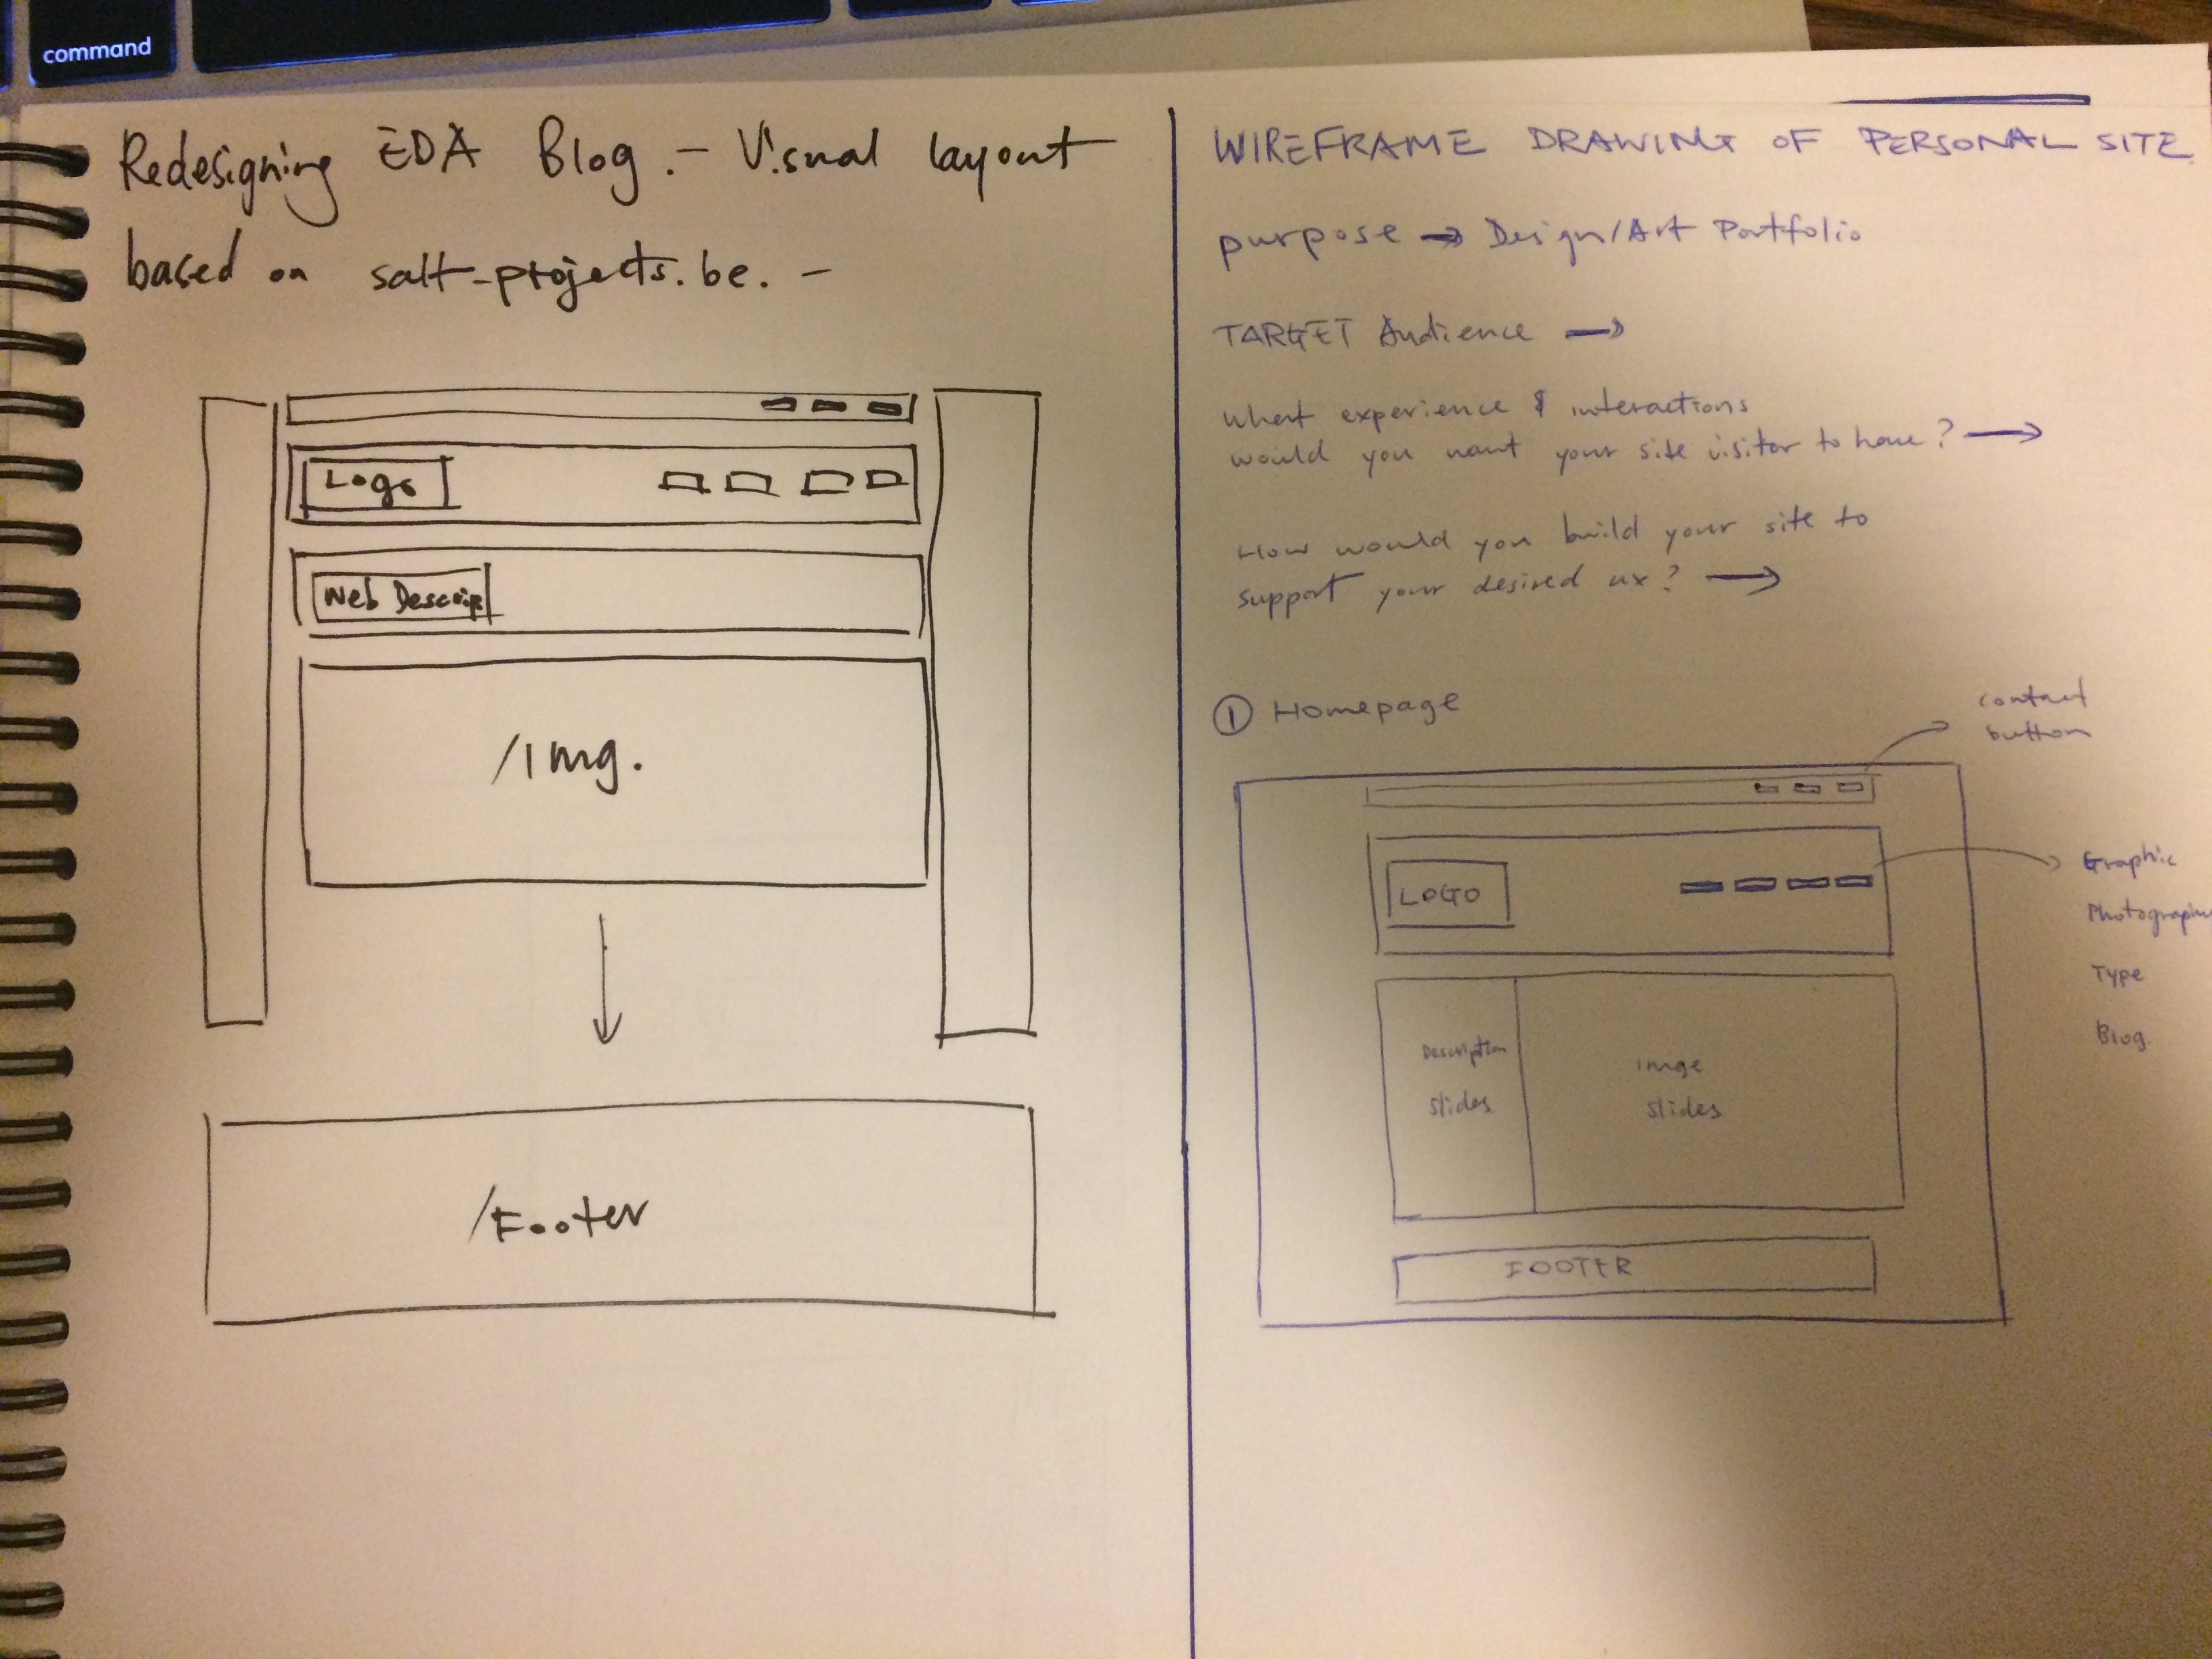 command
Redesigning EDA Blog. - Visual layout
based on salt-projects.be. -
Logo
Web Descrip
/Img.
/Footer
WIREFRAME DRAWING OF PERSONAL SITE
purpose → Design/Art Portfolio
TARGET Audience →
What experience & interactions
would you want your site visitor to have? →
How would you build your site to
support your desired ux? →
① Homepage
contact
button
LOGO
Graphic
Type
Blog.
Description
slides
image
slides
FOOTER